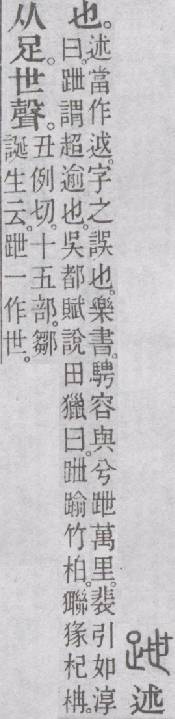 跇 述
也。
述當作𨒋。字之誤也。樂書。騁容與兮跇萬里。裴引如淳
曰。跇謂超逾也。吳都賦說田獵曰。跇踰竹柏。㺦猭杞柟。
从足。世聲。
丑例切。十五部。鄒
誕生云。跇一作世。